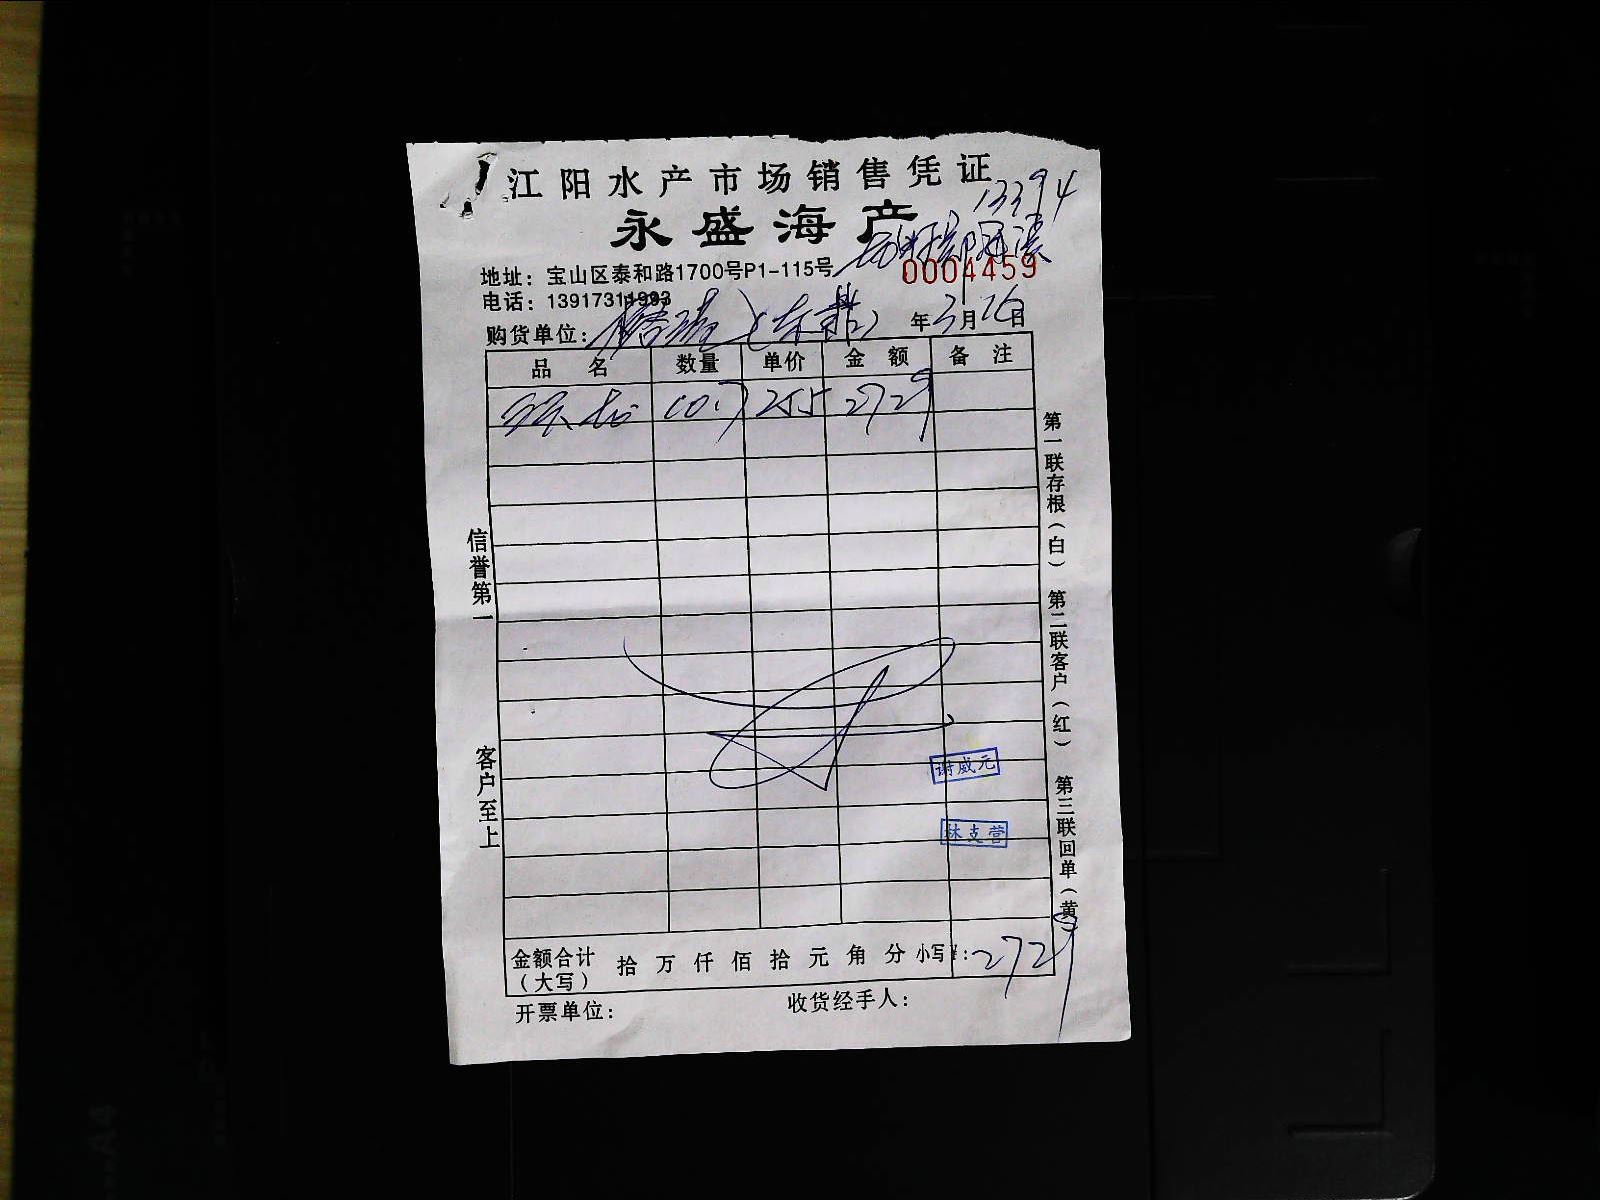 江阳水产市场销售凭证
13394
永盛海产
地址：宝山区泰和路1700号P1-115号
0004459
电话：13917311993
购货单位： 年3月26日
品名 数量 单价 金额 备注
10.7 255 2729
信誉第一
客户至上
第一联存根（白） 第二联客户（红） 第三联回单（黄）
谢威元
林支营
金额合计（大写） 拾 万 仟 佰 拾 元 角 分 小写¥：2729
开票单位： 收货经手人：